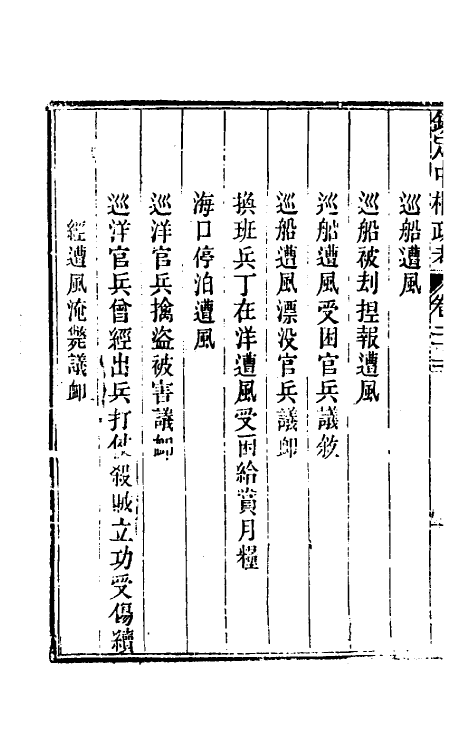 欽定中樞政考 卷三十三
巡船遭風
巡船被刦捏報遭風
巡船遭風受困官兵議敘
巡船遭風漂没官兵議卹
換班兵丁在洋遭風受困給賞月糧
海口停泊遭風
巡洋官兵擒盜被害議卹
巡洋官兵曾經出兵打仗殺賊立功受傷續
經遭風淹斃議卹